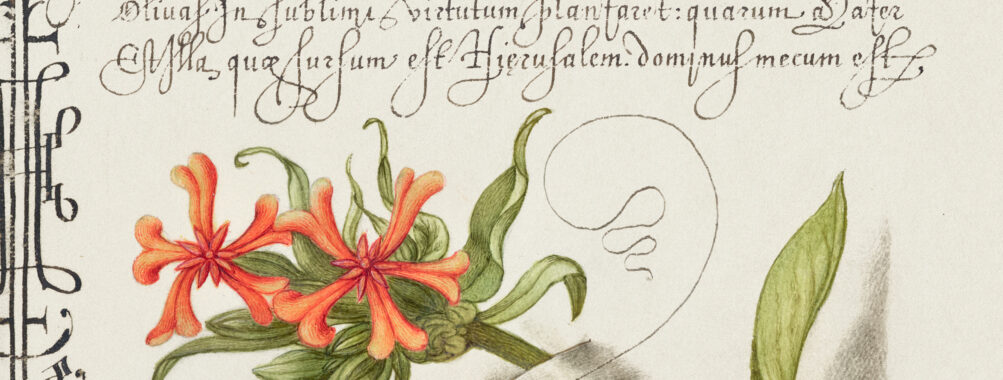 Olivas in sublimi virtutum plantaret: quarum Mater
Est illa, quæ sursum est Hierusalem. dominus mecum est